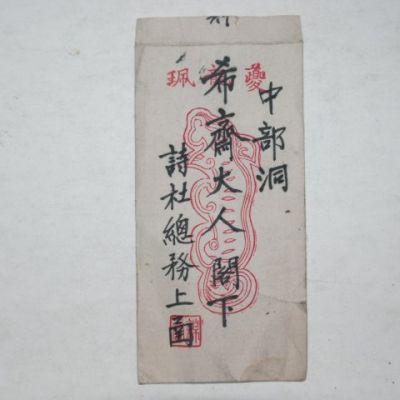 中部洞
希齋大人閣下
詩社總務上函
瓊 珮